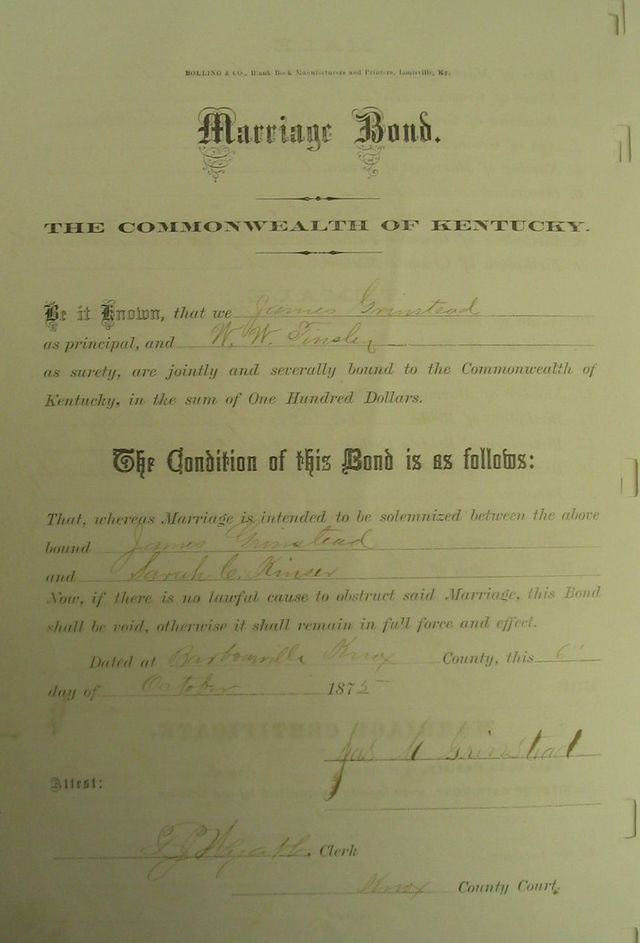 BOLLING & CO., Blank Book Manufacturers and Printers, Louisville, Ky.
Marriage Bond.
THE COMMONWEALTH OF KENTUCKY.
Be it Known, that we James Grinstead
as principal, and W. W. Tinsley
as surety, are jointly and severally bound to the Commonwealth of
Kentucky, in the sum of One Hundred Dollars.
The Condition of this Bond is as follows:
That, whereas Marriage is intended to be solemnized between the above
bound James Grinstead
and Sarah C. Kinser
Now, if there is no lawful cause to obstruct said Marriage, this Bond
shall be void, otherwise it shall remain in full force and effect.
Dated at Barbourville Knox County, this 6"
day of October 1875
Jas M Grinstead
Attest:
Wyatt, Clerk
Knox County Court.